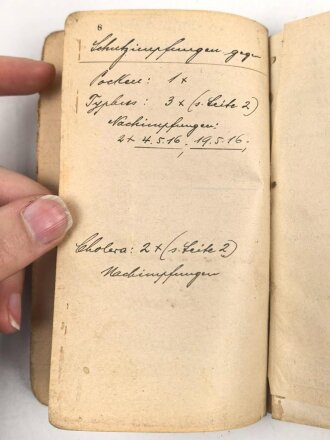 8
Schutzimpfungen gegen
Pocken: 1 x
Typhus: 3 x (s. Seite 2)
Nachimpfungen:
2x 4.5.16, 19.5.16,
Cholera: 2 x (s. Seite 2)
Nachimpfungen